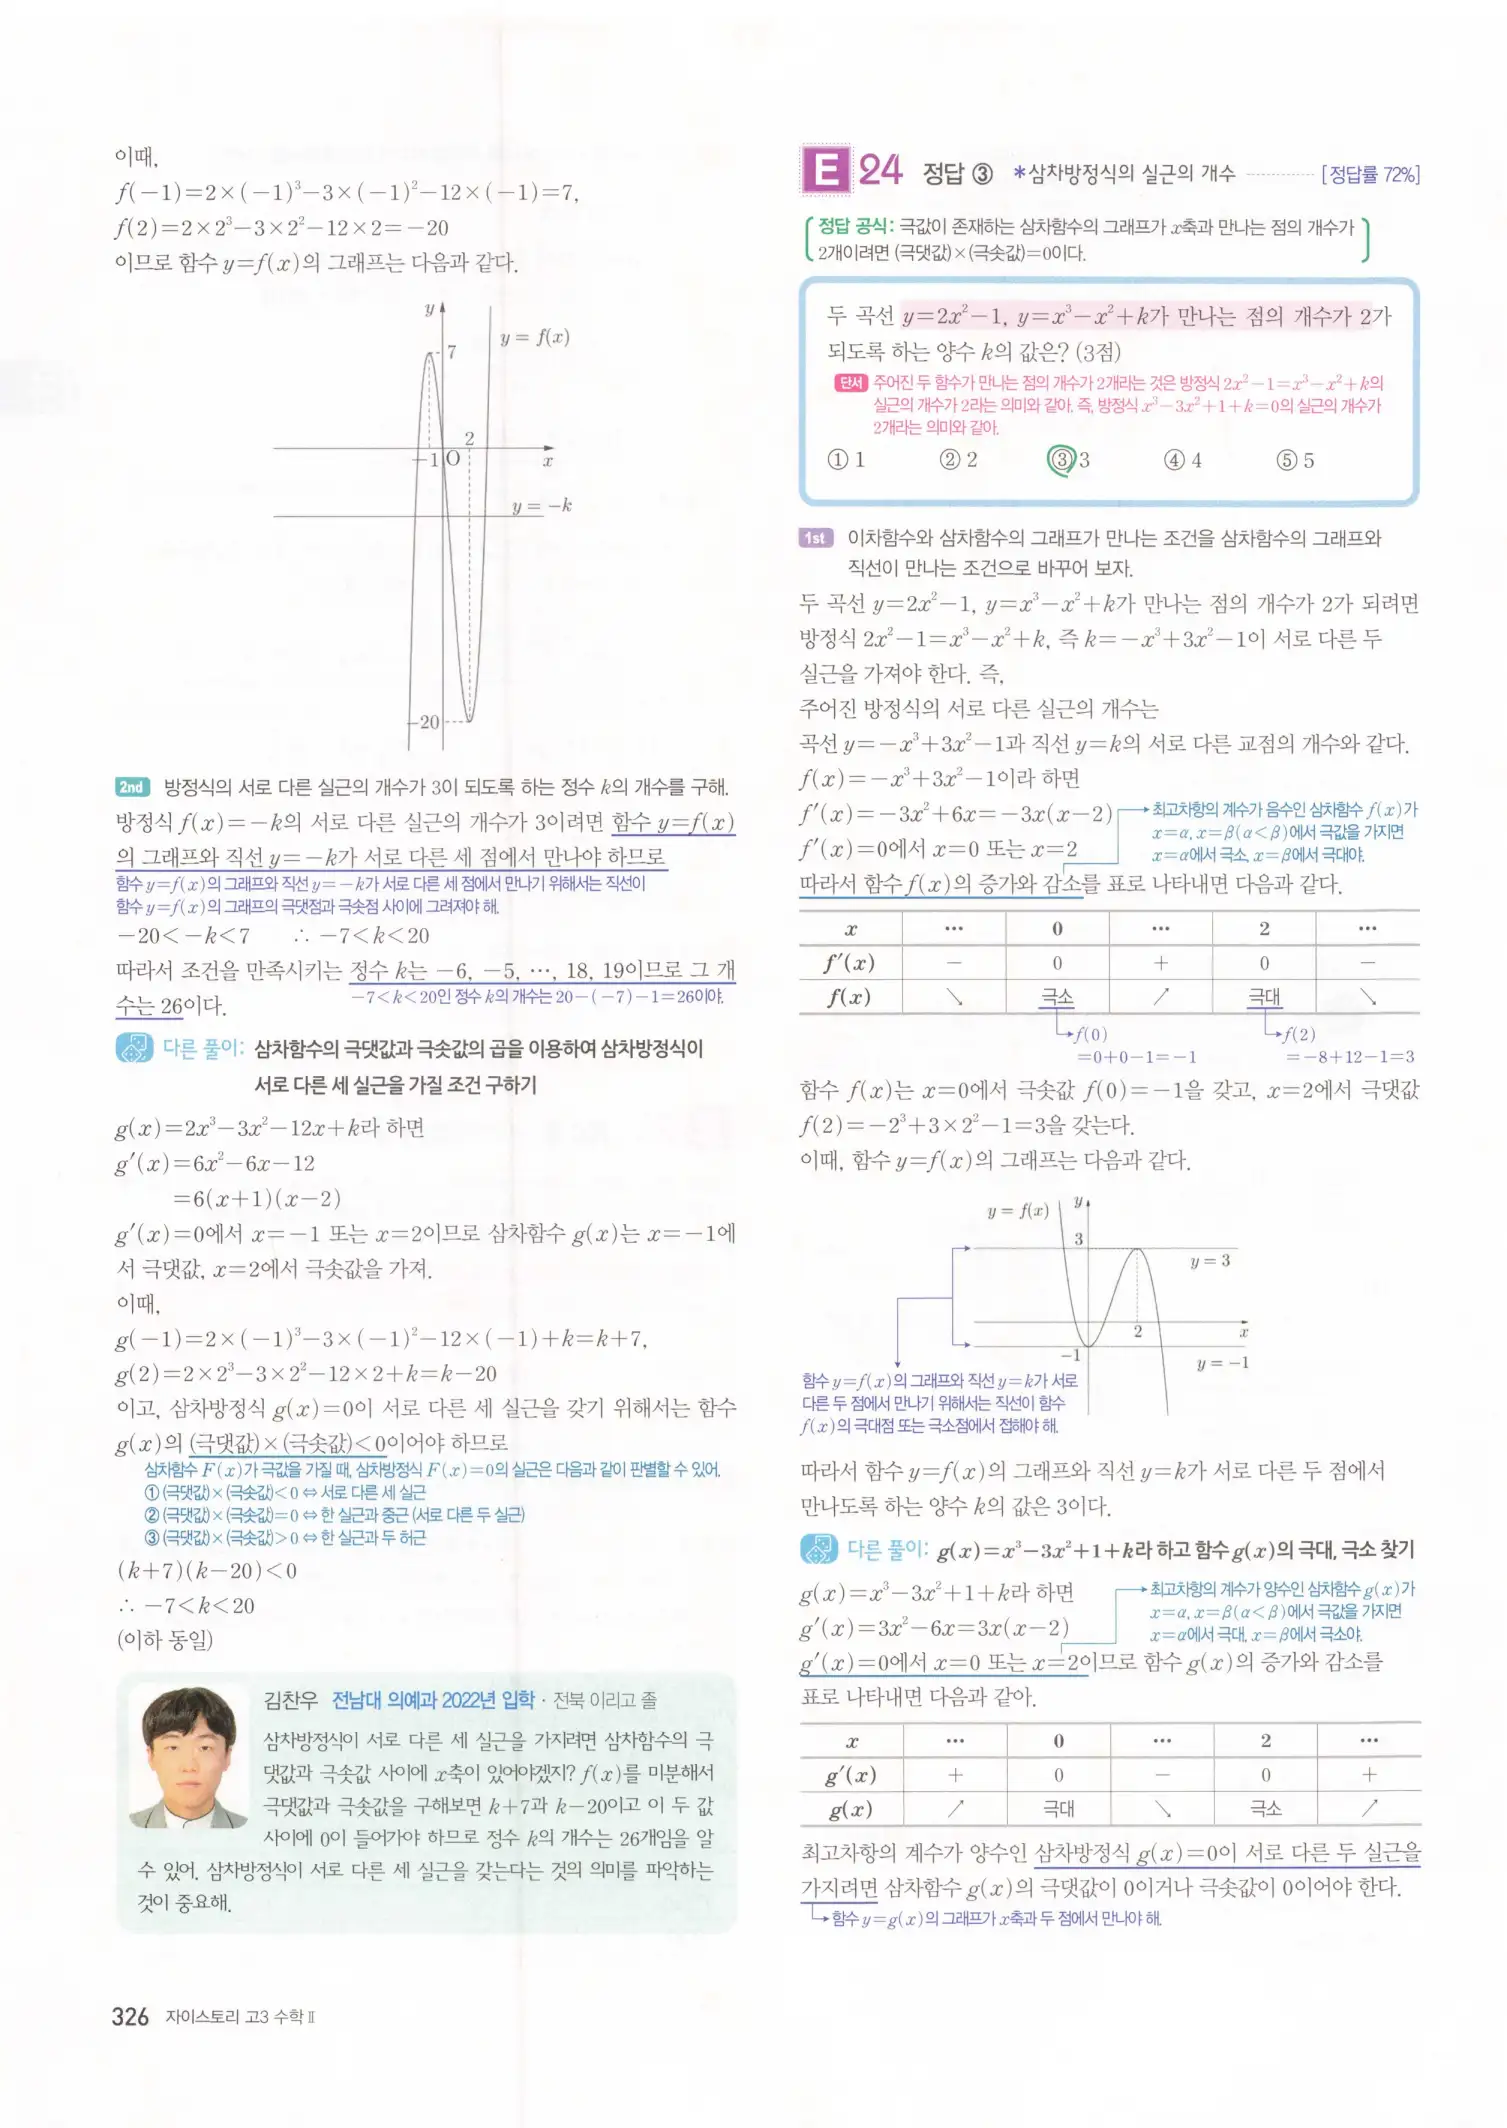 이때,
f(-1)=2×(-1)³-3×(-1)²-12×(-1)=7,
f(2)=2×2³-3×2²-12×2=-20
이므로 함수 y=f(x)의 그래프는 다음과 같다.
y
7
y=f(x)
2
-1
O
x
y=-k
-20
2nd 방정식의 서로 다른 실근의 개수가 3이 되도록 하는 정수 k의 개수를 구해.
방정식 f(x)=-k의 서로 다른 실근의 개수가 3이려면 함수 y=f(x)
의 그래프와 직선 y=-k가 서로 다른 세 점에서 만나야 하므로
함수 y=f(x)의 그래프와 직선 y=-k가 서로 다른 세 점에서 만나기 위해서는 직선이
함수 y=f(x)의 그래프의 극댓점과 극솟점 사이에 그려져야 해.
-20<-k<7 ∴ -7<k<20
따라서 조건을 만족시키는 정수 k는 -6, -5, …, 18, 19이므로 그 개
수는 26이다.
-7<k<20인 정수 k의 개수는 20-(-7)-1=26이야.
다른 풀이: 삼차함수의 극댓값과 극솟값의 곱을 이용하여 삼차방정식이
서로 다른 세 실근을 가질 조건 구하기
g(x)=2x³-3x²-12x+k라 하면
g′(x)=6x²-6x-12
=6(x+1)(x-2)
g′(x)=0에서 x=-1 또는 x=2이므로 삼차함수 g(x)는 x=-1에
서 극댓값, x=2에서 극솟값을 가져.
이때,
g(-1)=2×(-1)³-3×(-1)²-12×(-1)+k=k+7,
g(2)=2×2³-3×2²-12×2+k=k-20
이고, 삼차방정식 g(x)=0이 서로 다른 세 실근을 갖기 위해서는 함수
g(x)의 (극댓값)×(극솟값)<0이어야 하므로
삼차함수 F(x)가 극값을 가질 때, 삼차방정식 F(x)=0의 실근은 다음과 같이 판별할 수 있어.
① (극댓값)×(극솟값)<0 ⇔ 서로 다른 세 실근
② (극댓값)×(극솟값)=0 ⇔ 한 실근과 중근 (서로 다른 두 실근)
③ (극댓값)×(극솟값)>0 ⇔ 한 실근과 두 허근
(k+7)(k-20)<0
∴ -7<k<20
(이하 동일)
김찬우 전남대 의예과 2022년 입학 · 전북 이리고 졸
삼차방정식이 서로 다른 세 실근을 가지려면 삼차함수의 극
댓값과 극솟값 사이에 x축이 있어야겠지? f(x)를 미분해서
극댓값과 극솟값을 구해보면 k+7과 k-20이고 이 두 값
사이에 0이 들어가야 하므로 정수 k의 개수는 26개임을 알
수 있어. 삼차방정식이 서로 다른 세 실근을 갖는다는 것의 의미를 파악하는
것이 중요해.
326 자이스토리 고3 수학Ⅱ
E 24 정답 ③ *삼차방정식의 실근의 개수 [정답률 72%]
정답 공식: 극값이 존재하는 삼차함수의 그래프가 x축과 만나는 점의 개수가
2개이려면 (극댓값)×(극솟값)=0이다.
두 곡선 y=2x²-1, y=x³-x²+k가 만나는 점의 개수가 2가
되도록 하는 양수 k의 값은? (3점)
단서 주어진 두 함수가 만나는 점의 개수가 2개라는 것은 방정식 2x²-1=x³-x²+k의
실근의 개수가 2라는 의미와 같아. 즉, 방정식 x³-3x²+1+k=0의 실근의 개수가
2개라는 의미와 같아.
① 1 ② 2 ③ 3 ④ 4 ⑤ 5
1st 이차함수와 삼차함수의 그래프가 만나는 조건을 삼차함수의 그래프와
직선이 만나는 조건으로 바꾸어 보자.
두 곡선 y=2x²-1, y=x³-x²+k가 만나는 점의 개수가 2가 되려면
방정식 2x²-1=x³-x²+k, 즉 k=-x³+3x²-1이 서로 다른 두
실근을 가져야 한다. 즉,
주어진 방정식의 서로 다른 실근의 개수는
곡선 y=-x³+3x²-1과 직선 y=k의 서로 다른 교점의 개수와 같다.
f(x)=-x³+3x²-1이라 하면
f′(x)=-3x²+6x=-3x(x-2)
f′(x)=0에서 x=0 또는 x=2
최고차항의 계수가 음수인 삼차함수 f(x)가
x=α, x=β(α<β)에서 극값을 가지면
x=α에서 극소, x=β에서 극대야.
따라서 함수 f(x)의 증가와 감소를 표로 나타내면 다음과 같다.
x … 0 … 2 …
f′(x) - 0 + 0 -
f(x) ↘ 극소 ↗ 극대 ↘
f(0)
=0+0-1=-1
f(2)
=-8+12-1=3
함수 f(x)는 x=0에서 극솟값 f(0)=-1을 갖고, x=2에서 극댓값
f(2)=-2³+3×2²-1=3을 갖는다.
이때, 함수 y=f(x)의 그래프는 다음과 같다.
y=f(x)
y
3
y=3
2
x
-1
y=-1
함수 y=f(x)의 그래프와 직선 y=k가 서로
다른 두 점에서 만나기 위해서는 직선이 함수
f(x)의 극대점 또는 극소점에서 접해야 해.
따라서 함수 y=f(x)의 그래프와 직선 y=k가 서로 다른 두 점에서
만나도록 하는 양수 k의 값은 3이다.
다른 풀이: g(x)=x³-3x²+1+k라 하고 함수 g(x)의 극대, 극소 찾기
g(x)=x³-3x²+1+k라 하면
g′(x)=3x²-6x=3x(x-2)
최고차항의 계수가 양수인 삼차함수 g(x)가
x=α, x=β(α<β)에서 극값을 가지면
x=α에서 극대, x=β에서 극소야.
g′(x)=0에서 x=0 또는 x=2이므로 함수 g(x)의 증가와 감소를
표로 나타내면 다음과 같아.
x … 0 … 2 …
g′(x) + 0 - 0 +
g(x) ↗ 극대 ↘ 극소 ↗
최고차항의 계수가 양수인 삼차방정식 g(x)=0이 서로 다른 두 실근을
가지려면 삼차함수 g(x)의 극댓값이 0이거나 극솟값이 0이어야 한다.
함수 y=g(x)의 그래프가 x축과 두 점에서 만나야 해.